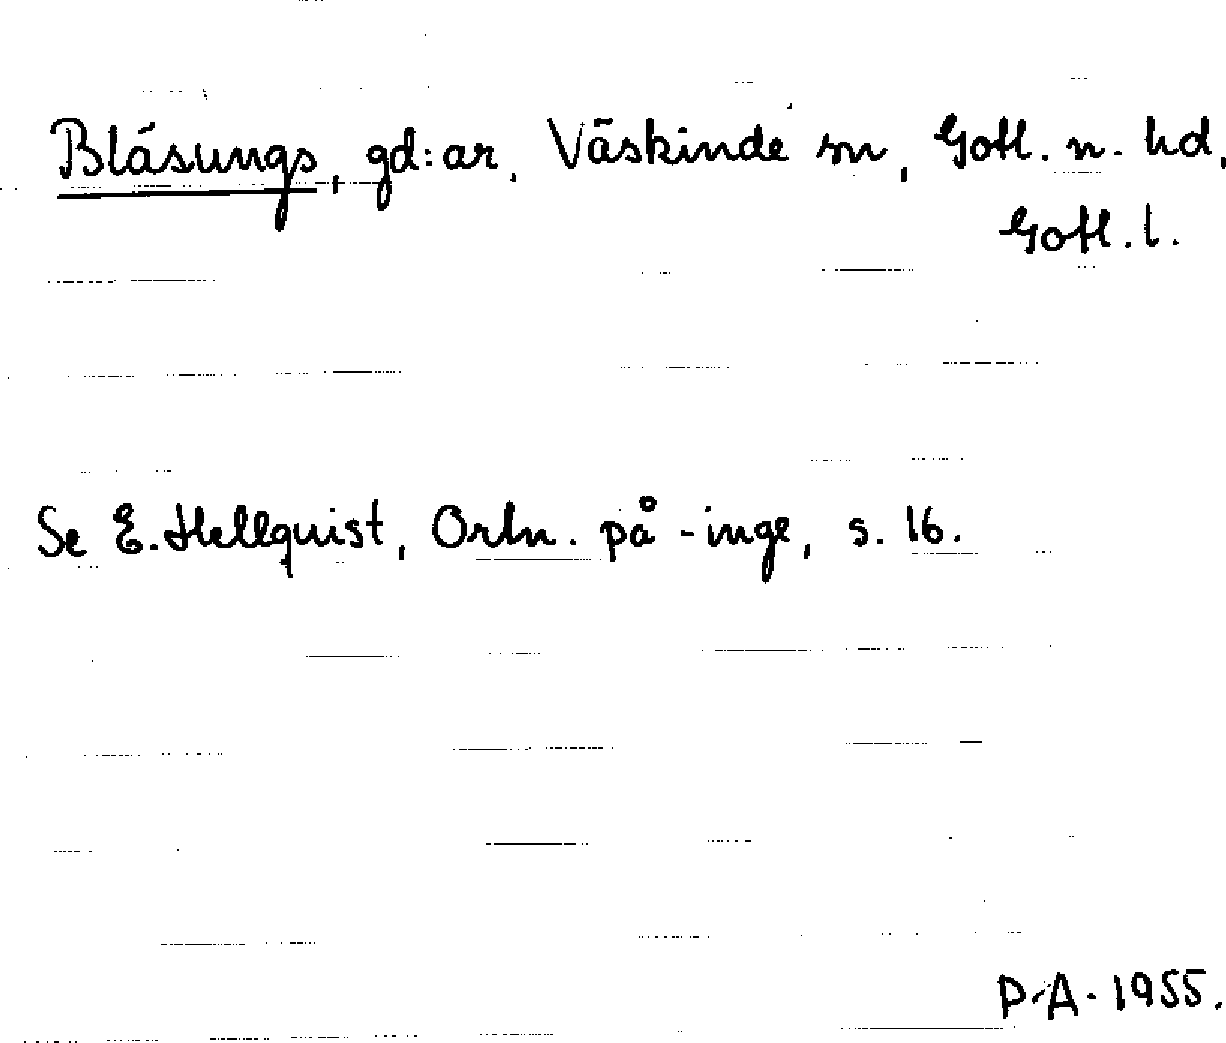 Blásungs, gd:ar, Väskinde sn, Gotl. n. hd,
Gotl. l.
Se E. Hellquist, Ortn. på -inge, s. 16.
P.A. 1955.